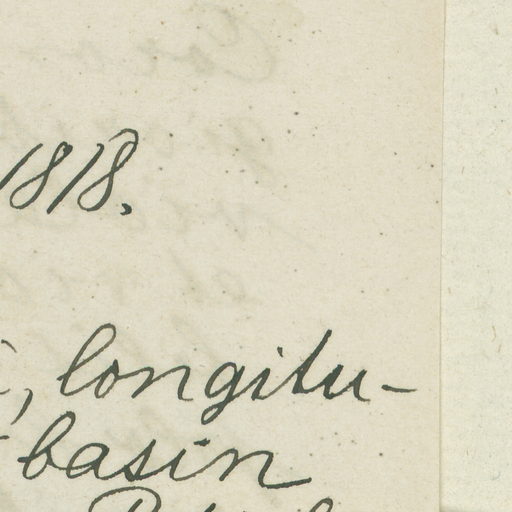 1818.
, longitu-
-basin